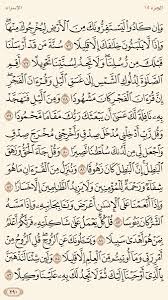 الجزء ١٥ الإسراء
وَإِن كَادُوا۟ لَيَسْتَفِزُّونَكَ مِنَ ٱلْأَرْضِ لِيُخْرِجُوكَ مِنْهَا
وَإِذًا لَّا يَلْبَثُونَ خِلَٰفَكَ إِلَّا قَلِيلًا ٧٦ سُنَّةَ مَن قَدْ أَرْسَلْنَا
قَبْلَكَ مِن رُّسُلِنَا وَلَا تَجِدُ لِسُنَّتِنَا تَحْوِيلًا ٧٧ أَقِمِ ٱلصَّلَوٰةَ
لِدُلُوكِ ٱلشَّمْسِ إِلَىٰ غَسَقِ ٱلَّيْلِ وَقُرْءَانَ ٱلْفَجْرِ إِنَّ قُرْءَانَ
ٱلْفَجْرِ كَانَ مَشْهُودًا ٧٨ وَمِنَ ٱلَّيْلِ فَتَهَجَّدْ بِهِۦ نَافِلَةً لَّكَ
عَسَىٰٓ أَن يَبْعَثَكَ رَبُّكَ مَقَامًا مَّحْمُودًا ٧٩ وَقُل رَّبِّ أَدْخِلْنِى
مُدْخَلَ صِدْقٍ وَأَخْرِجْنِى مُخْرَجَ صِدْقٍ وَٱجْعَل لِّى مِن
لَّدُنكَ سُلْطَٰنًا نَّصِيرًا ٨٠ وَقُلْ جَآءَ ٱلْحَقُّ وَزَهَقَ ٱلْبَٰطِلُ إِنَّ
ٱلْبَٰطِلَ كَانَ زَهُوقًا ٨١ وَنُنَزِّلُ مِنَ ٱلْقُرْءَانِ مَا هُوَ شِفَآءٌ وَرَحْمَةٌ
لِّلْمُؤْمِنِينَ وَلَا يَزِيدُ ٱلظَّٰلِمِينَ إِلَّا خَسَارًا ٨٢ وَإِذَآ أَنْعَمْنَا
عَلَى ٱلْإِنسَٰنِ أَعْرَضَ وَنَـَٔا بِجَانِبِهِۦ وَإِذَا مَسَّهُ ٱلشَّرُّ كَانَ يَـُٔوسًا
٨٣ قُلْ كُلٌّ يَعْمَلُ عَلَىٰ شَاكِلَتِهِۦ فَرَبُّكُمْ أَعْلَمُ بِمَنْ هُوَ أَهْدَىٰ
سَبِيلًا ٨٤ وَيَسْـَٔلُونَكَ عَنِ ٱلرُّوحِ قُلِ ٱلرُّوحُ مِنْ أَمْرِ رَبِّى وَمَآ
أُوتِيتُم مِّنَ ٱلْعِلْمِ إِلَّا قَلِيلًا ٨٥ وَلَئِن شِئْنَا لَنَذْهَبَنَّ
بِٱلَّذِىٓ أَوْحَيْنَآ إِلَيْكَ ثُمَّ لَا تَجِدُ لَكَ بِهِۦ عَلَيْنَا وَكِيلًا ٨٦
٢٩٠